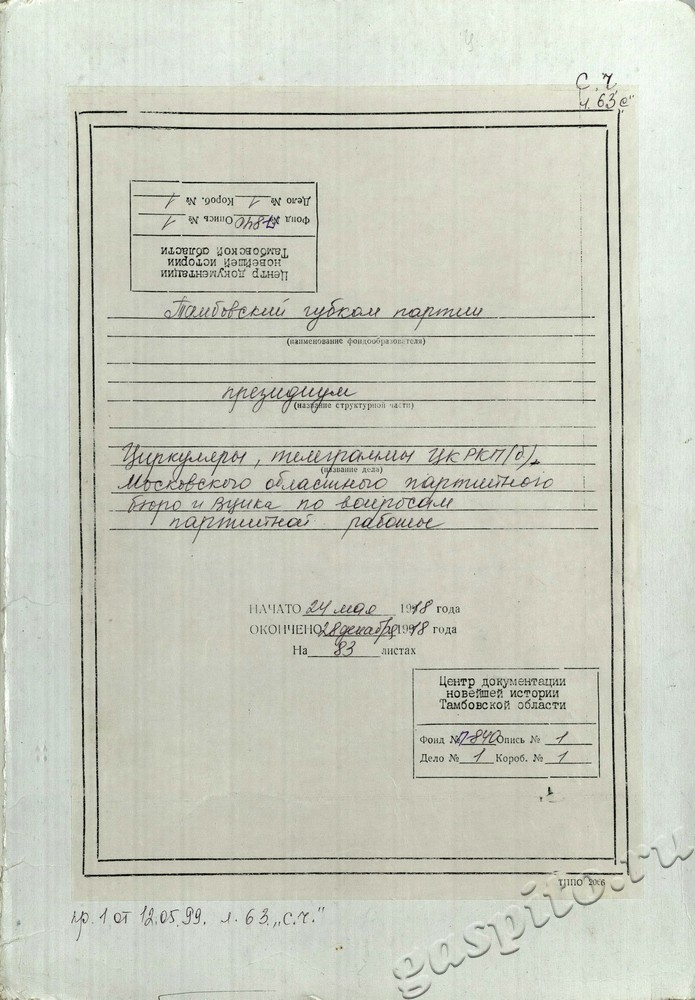 С.Ч.
л. 63 "С"
Центр документации
новейшей истории
Тамбовской области
Фонд № П-840 Опись № 1
Дело № 1 Короб. № 1
Тамбовский губком партии
(наименование фондообразователя)
президиум
(название структурной части)
Циркуляры, телеграммы ЦК РКП(б),
(название дела)
Московского областного партийного
бюро и ВЦИКа по вопросам
партийной работы
НАЧАТО 24 мая 1918 года
ОКОНЧЕНО 28 декабря 1918 года
На 83 листах
Центр документации
новейшей истории
Тамбовской области
Фонд № П-840 Опись № 1
Дело № 1 Короб. № 1
ТППО 2006
пр. 1 от 12.05.99. л. 63 „с.ч."
gaspito.ru